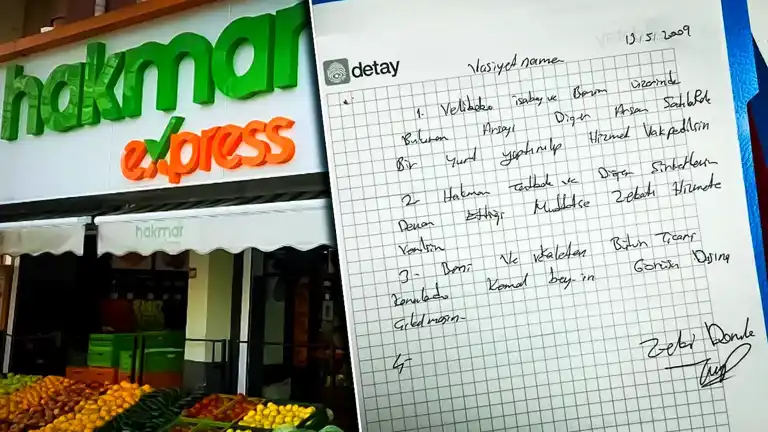 hakmar
express
hakmar
detay
13/5/2009
Vasiyet name
1. Velibaba
Bulunan Arsayı Diğer Arsam Satılarak
Bir Yurt yaptırılıp Hizmet Vakfedilsin
2 Hakmar ve Diğer Şirketlerim
Devam Ettiği Müddetçe Zekatı Hizmete
Verilsin
3- Beni Ve Vekaleten Bütün Ticari
Konularda Kemal bey-in Görüşü Dışına
Çıkılmasın
4
Zeki